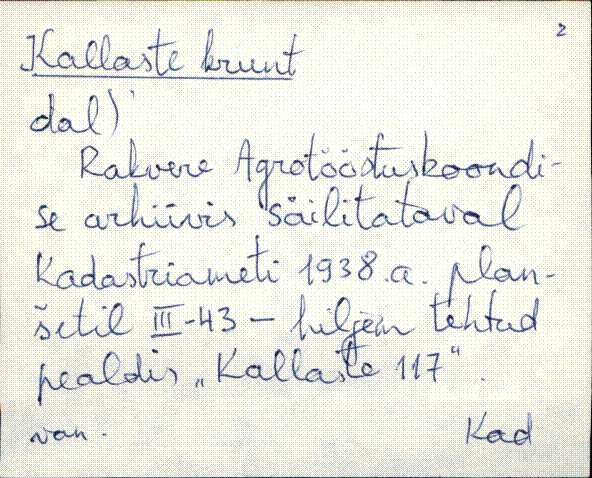 2
Kallaste krunt
dal)
Rakvere Agrotööstuskoondi-
se arhiivis säilitataval
Kadastriameti 1938.a. plan-
šetil III-43 – hiljem tehtud
pealdis „Kallaste 117".
van.
Kad